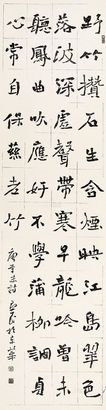 野竹攢石生含煙映江島翠色
落波深虛聲帶寒早龍吟曾未
聽鳳曲吹應好不學蒲柳凋貞
心常自保慈姥竹